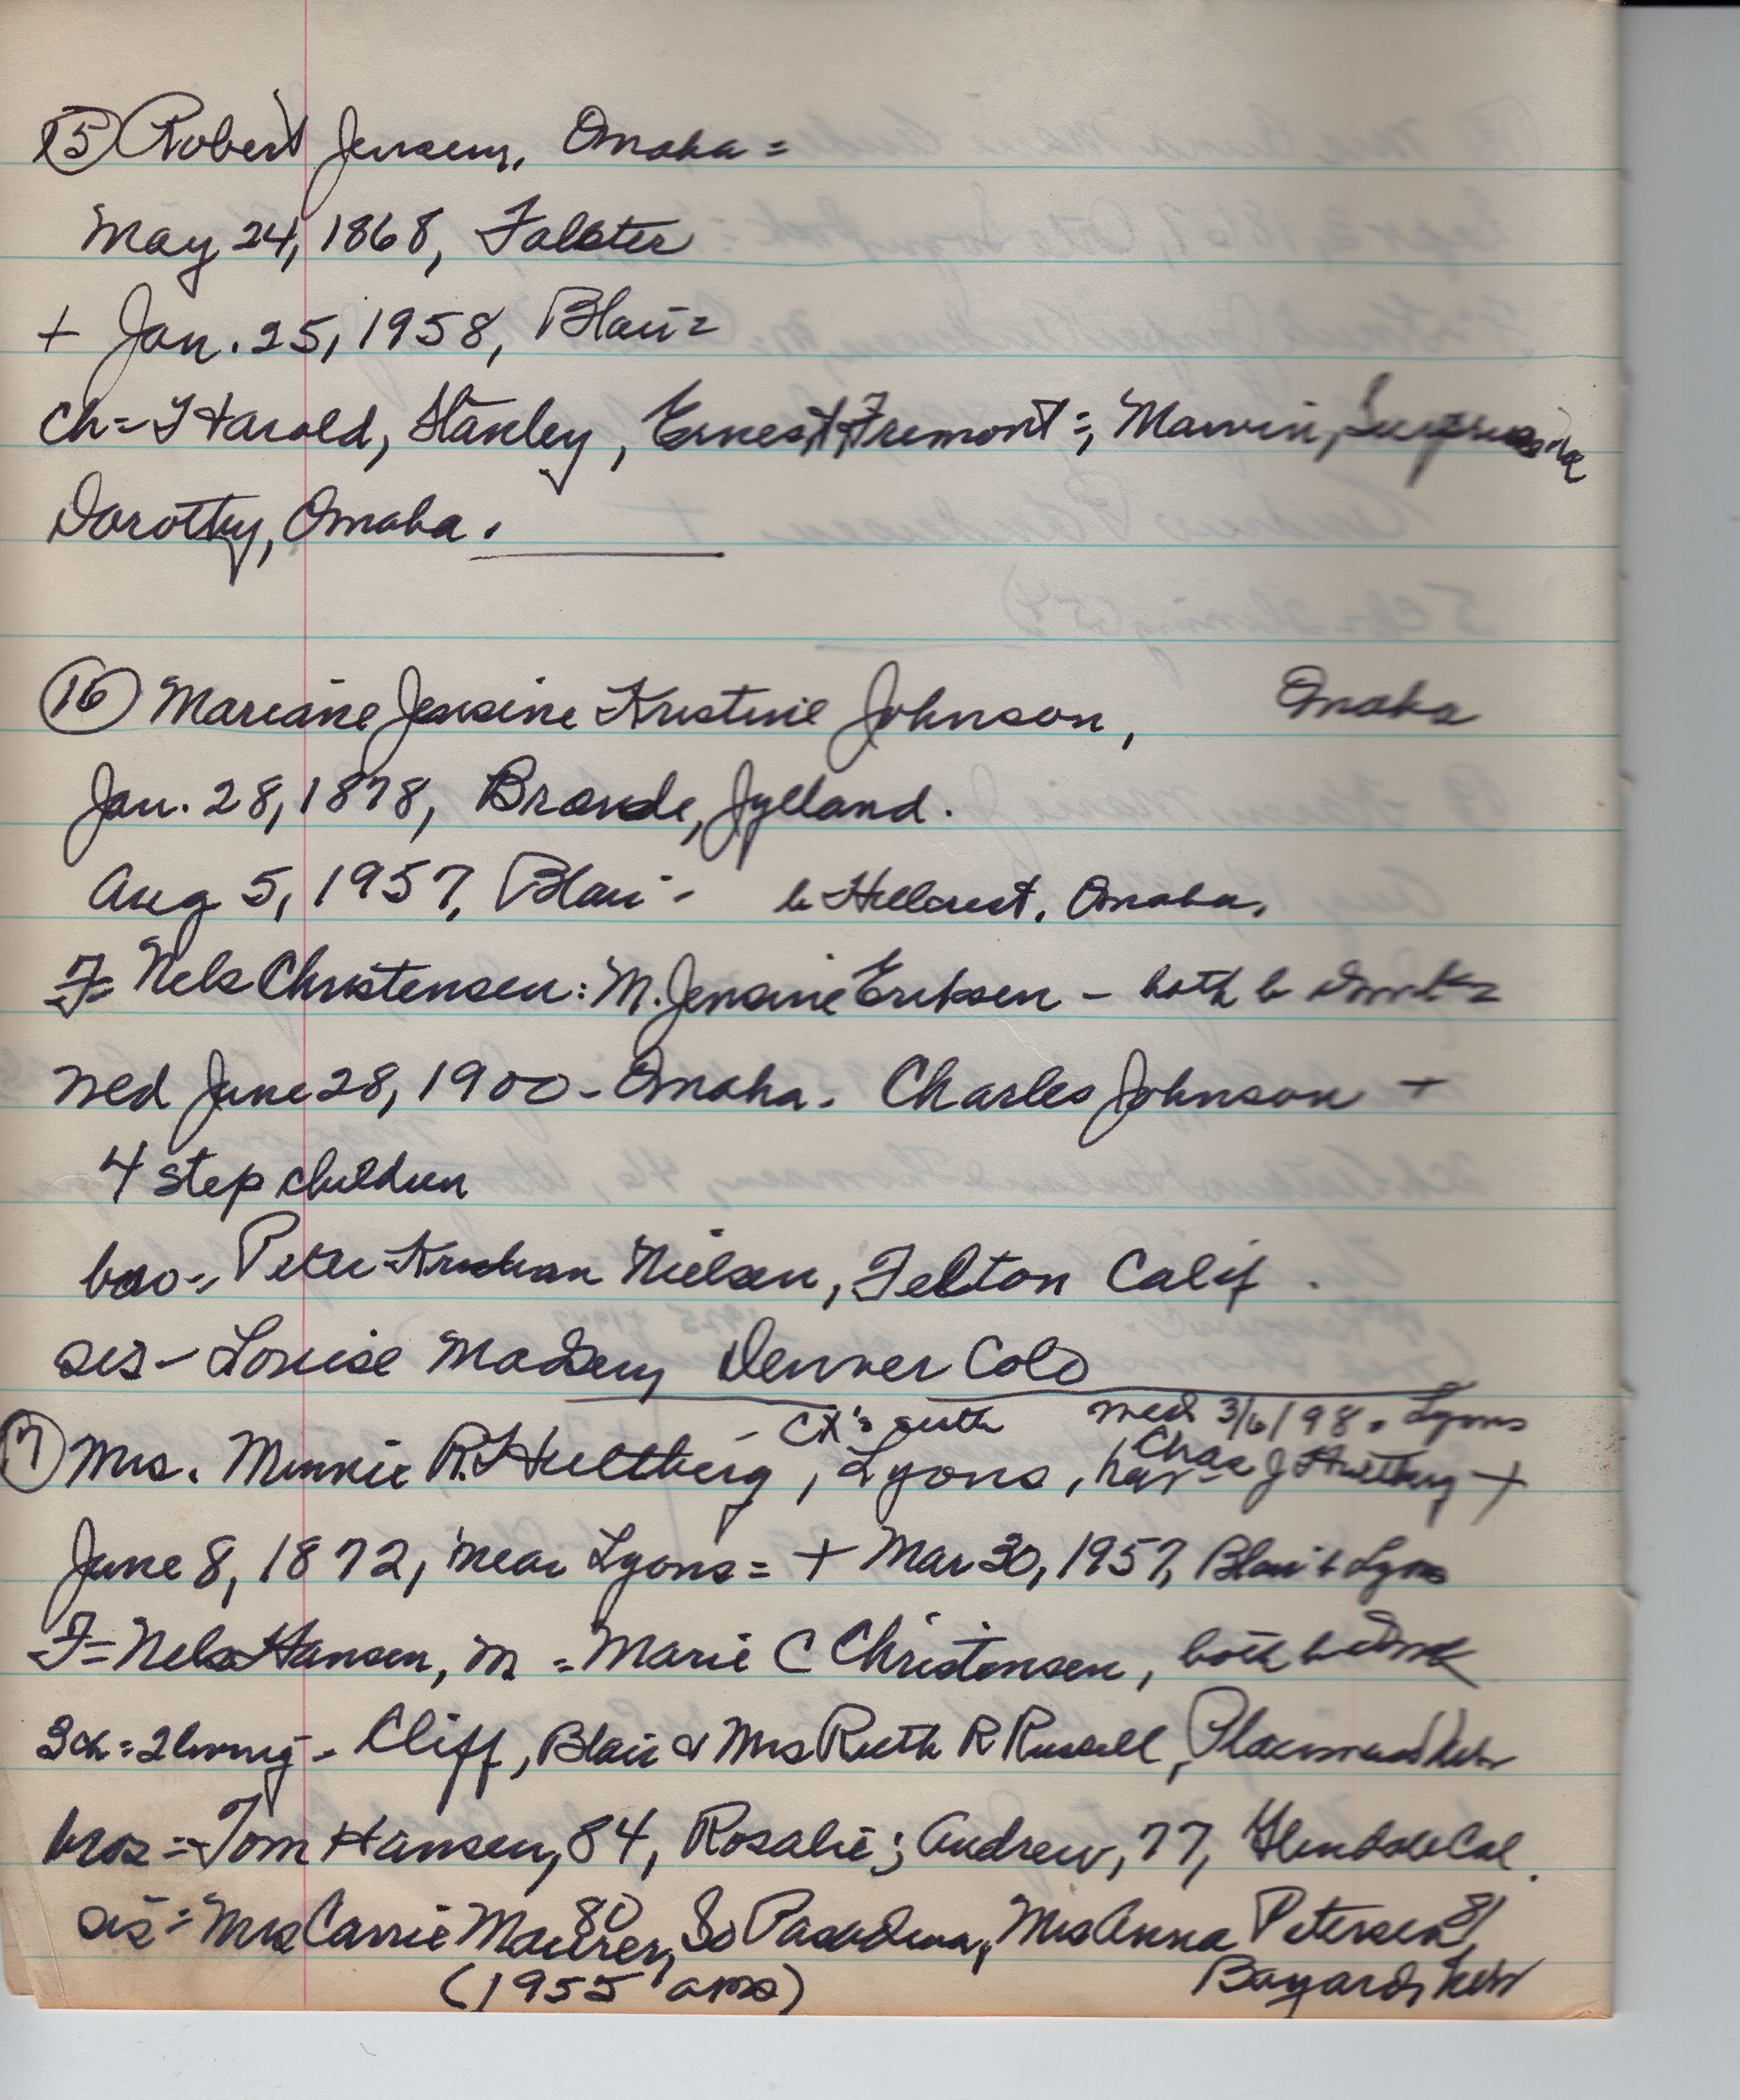 15 Robert Jensen, Omaha =
May 24, 1868, Falster
+ Jan. 25, 1958, Blair =
Ch = Harold, Stanley, Ernest, Fremont =, Marvin,
Dorothy, Omaha.
16 Mariane Jensine Kristine Johnson, Omaha
Jan. 28, 1878, Brande, Jylland.
Aug 5, 1957, Blair - b Hillcrest, Omaha.
F = Nels Christensen: M. Jensine Eriksen - both b
Wed June 28, 1900 - Omaha. Charles Johnson +
4 step children
bro -, Peter Kristian Nielsen, Felton Calif.
sis - Louise Madsen, Denver Colo
- CX's auth wed 3/6/98. Lyons
17 Mrs. Minnie R. Hultberg, Lyons, Chas J Hultberg +
June 8, 1872, near Lyons = + Mar 30, 1957, Blair b Lyons
F = Nels Hansen, m = Marie C Christensen, both b Dmk
3 ch = 2 living - Cliff, Blair & Mrs Ruth R Russell, Nebr
bros = Tom Hansen, 84, Rosalie; Andrew, 77, Glendale Cal.
sis = Mrs Carrie Maurer, 80 So Pasadena, Mrs Anna Petersen 81,
(1955 ams) Bayard, Nebr